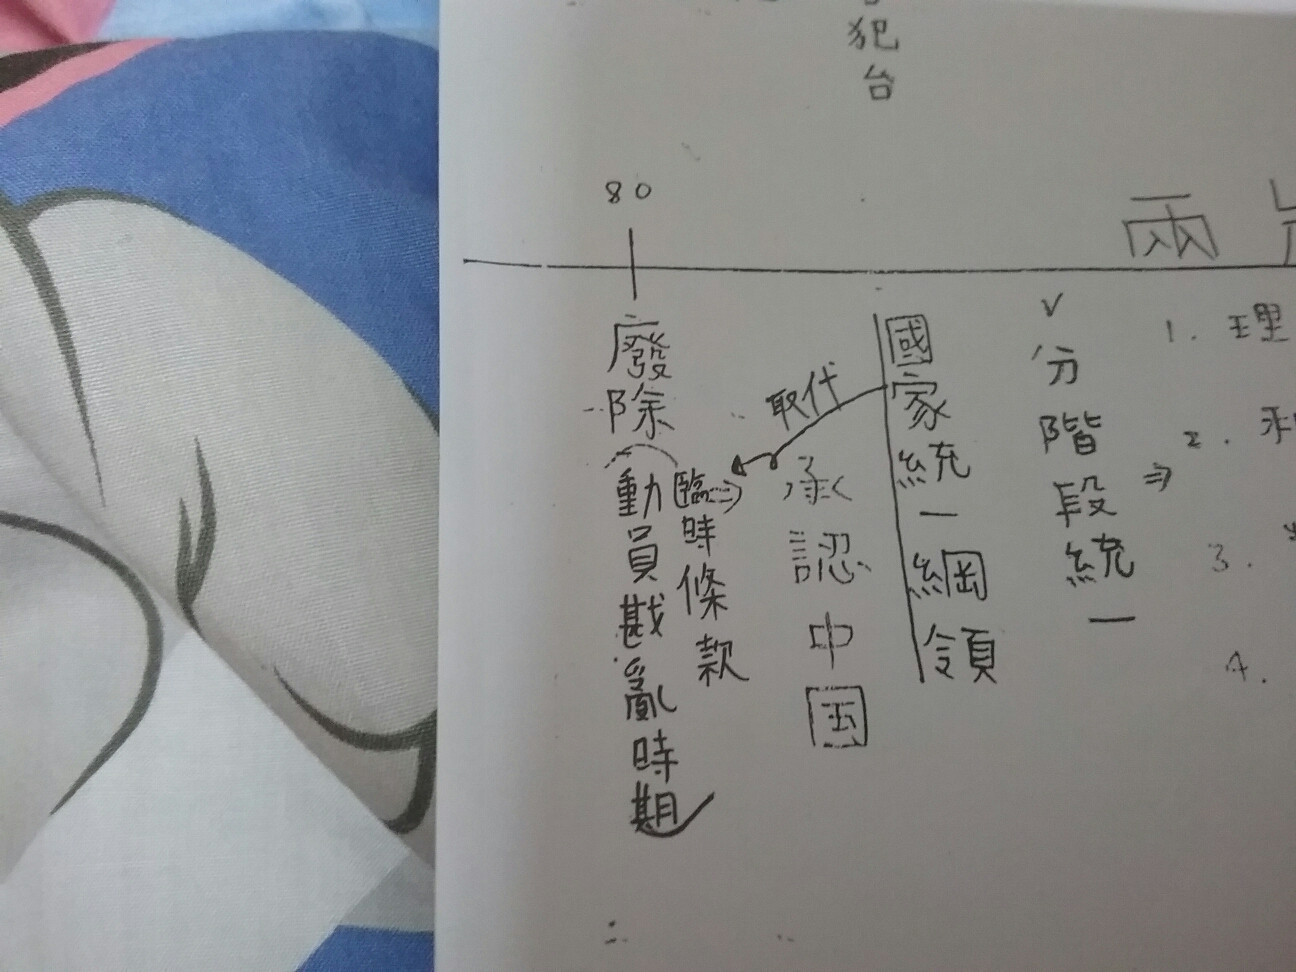 犯台
80
兩
廢除
動員戡亂時期
臨時條款
⇒
取代
承認中国
國家統一綱領
✓分階段統一
⇒
1. 理
2. 和
3.
4.